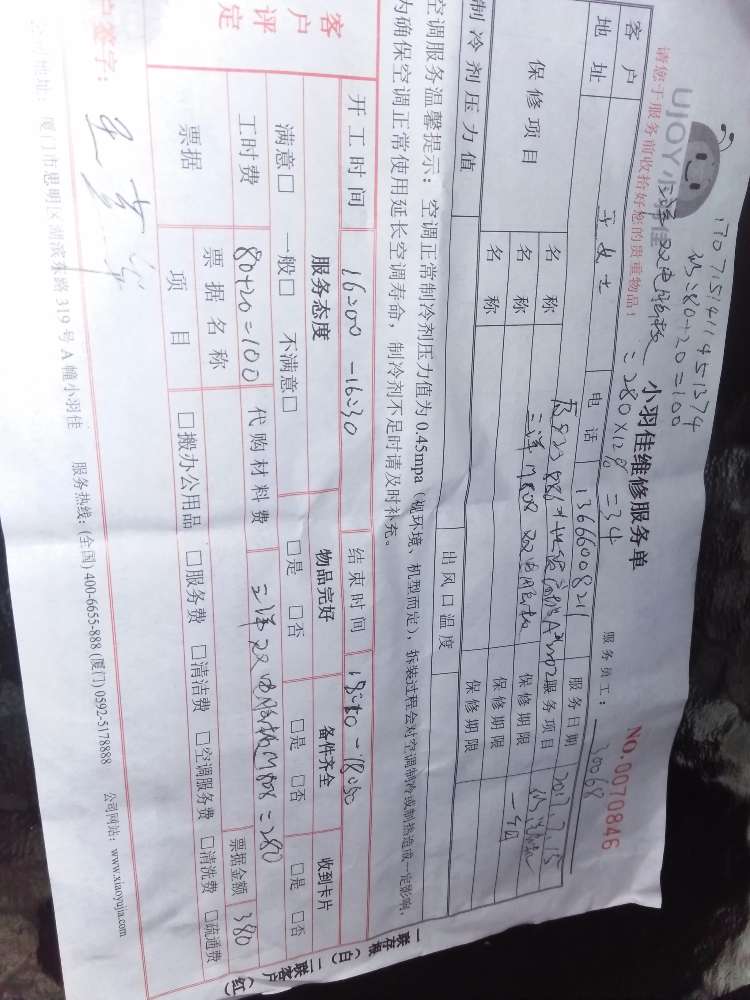 17071514114451374
UJOY小羽佳
80+20=100
请您于服务前收拾好您的贵重物品！
双电脑板 = 280×12% =34
小羽佳维修服务单
NO.0070846
服务员工：30088
客户 王女士 电话 服务日期 2017.7.15
地址
服务项目
保修项目 名称 三洋 双电脑板 保修期限 一年
名称 保修期限
名称 保修期限
制冷剂压力值 出风口温度
空调服务温馨提示：空调正常制冷剂压力值为0.45mpa（视环境、机型而定），拆装过程会对空调制冷或制热造成一定影响，
为确保空调正常使用延长空调寿命，制冷剂不足时请及时补充。
开工时间 16:00-16:30 结束时间
客户评定 服务态度 物品完好 备件齐全 收到卡片
满意□ 一般□ 不满意□ □是 □否 □是 □否 □是 □否
工时费 80+20=100 代购材料费 三洋双电脑板 =280 票据金额 380
票据 票据名称项目 □搬办公用品 □服务费 □清洁费 □空调服务费 □清洗费 □疏通费
户签字：
公司地址：厦门市思明区湖滨东路319号A幢小羽佳 服务热线：(全国)400-6655-888 (厦门) 0592-5178888 公司网站：www.xiaoyujia.com
一联存根（白）二联客户（红）